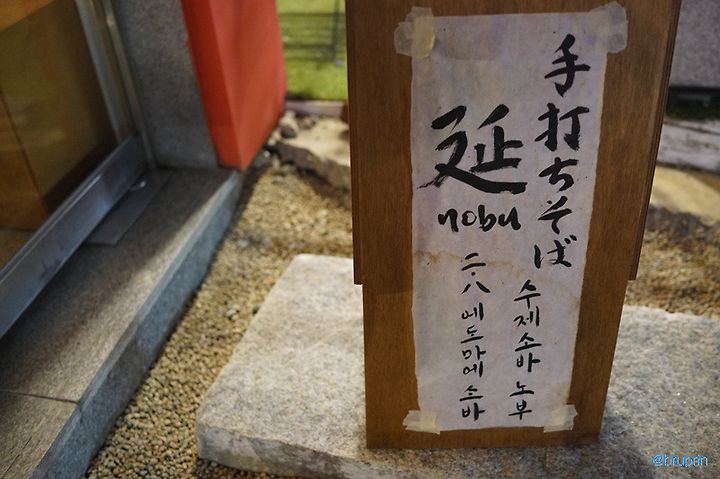 手打ちそば
수제소바 노부
延
nobu
二·八 에도마에 소바
@bruprin